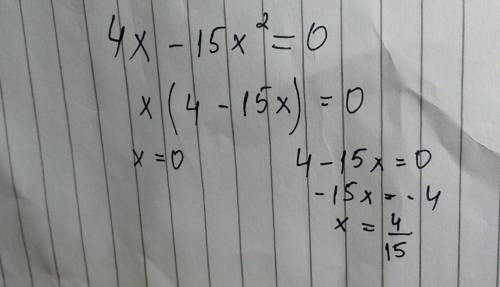 4x - 15x² = 0
x(4 - 15x) = 0
x = 0
4 - 15x = 0
-15x = -4
x = 4/15